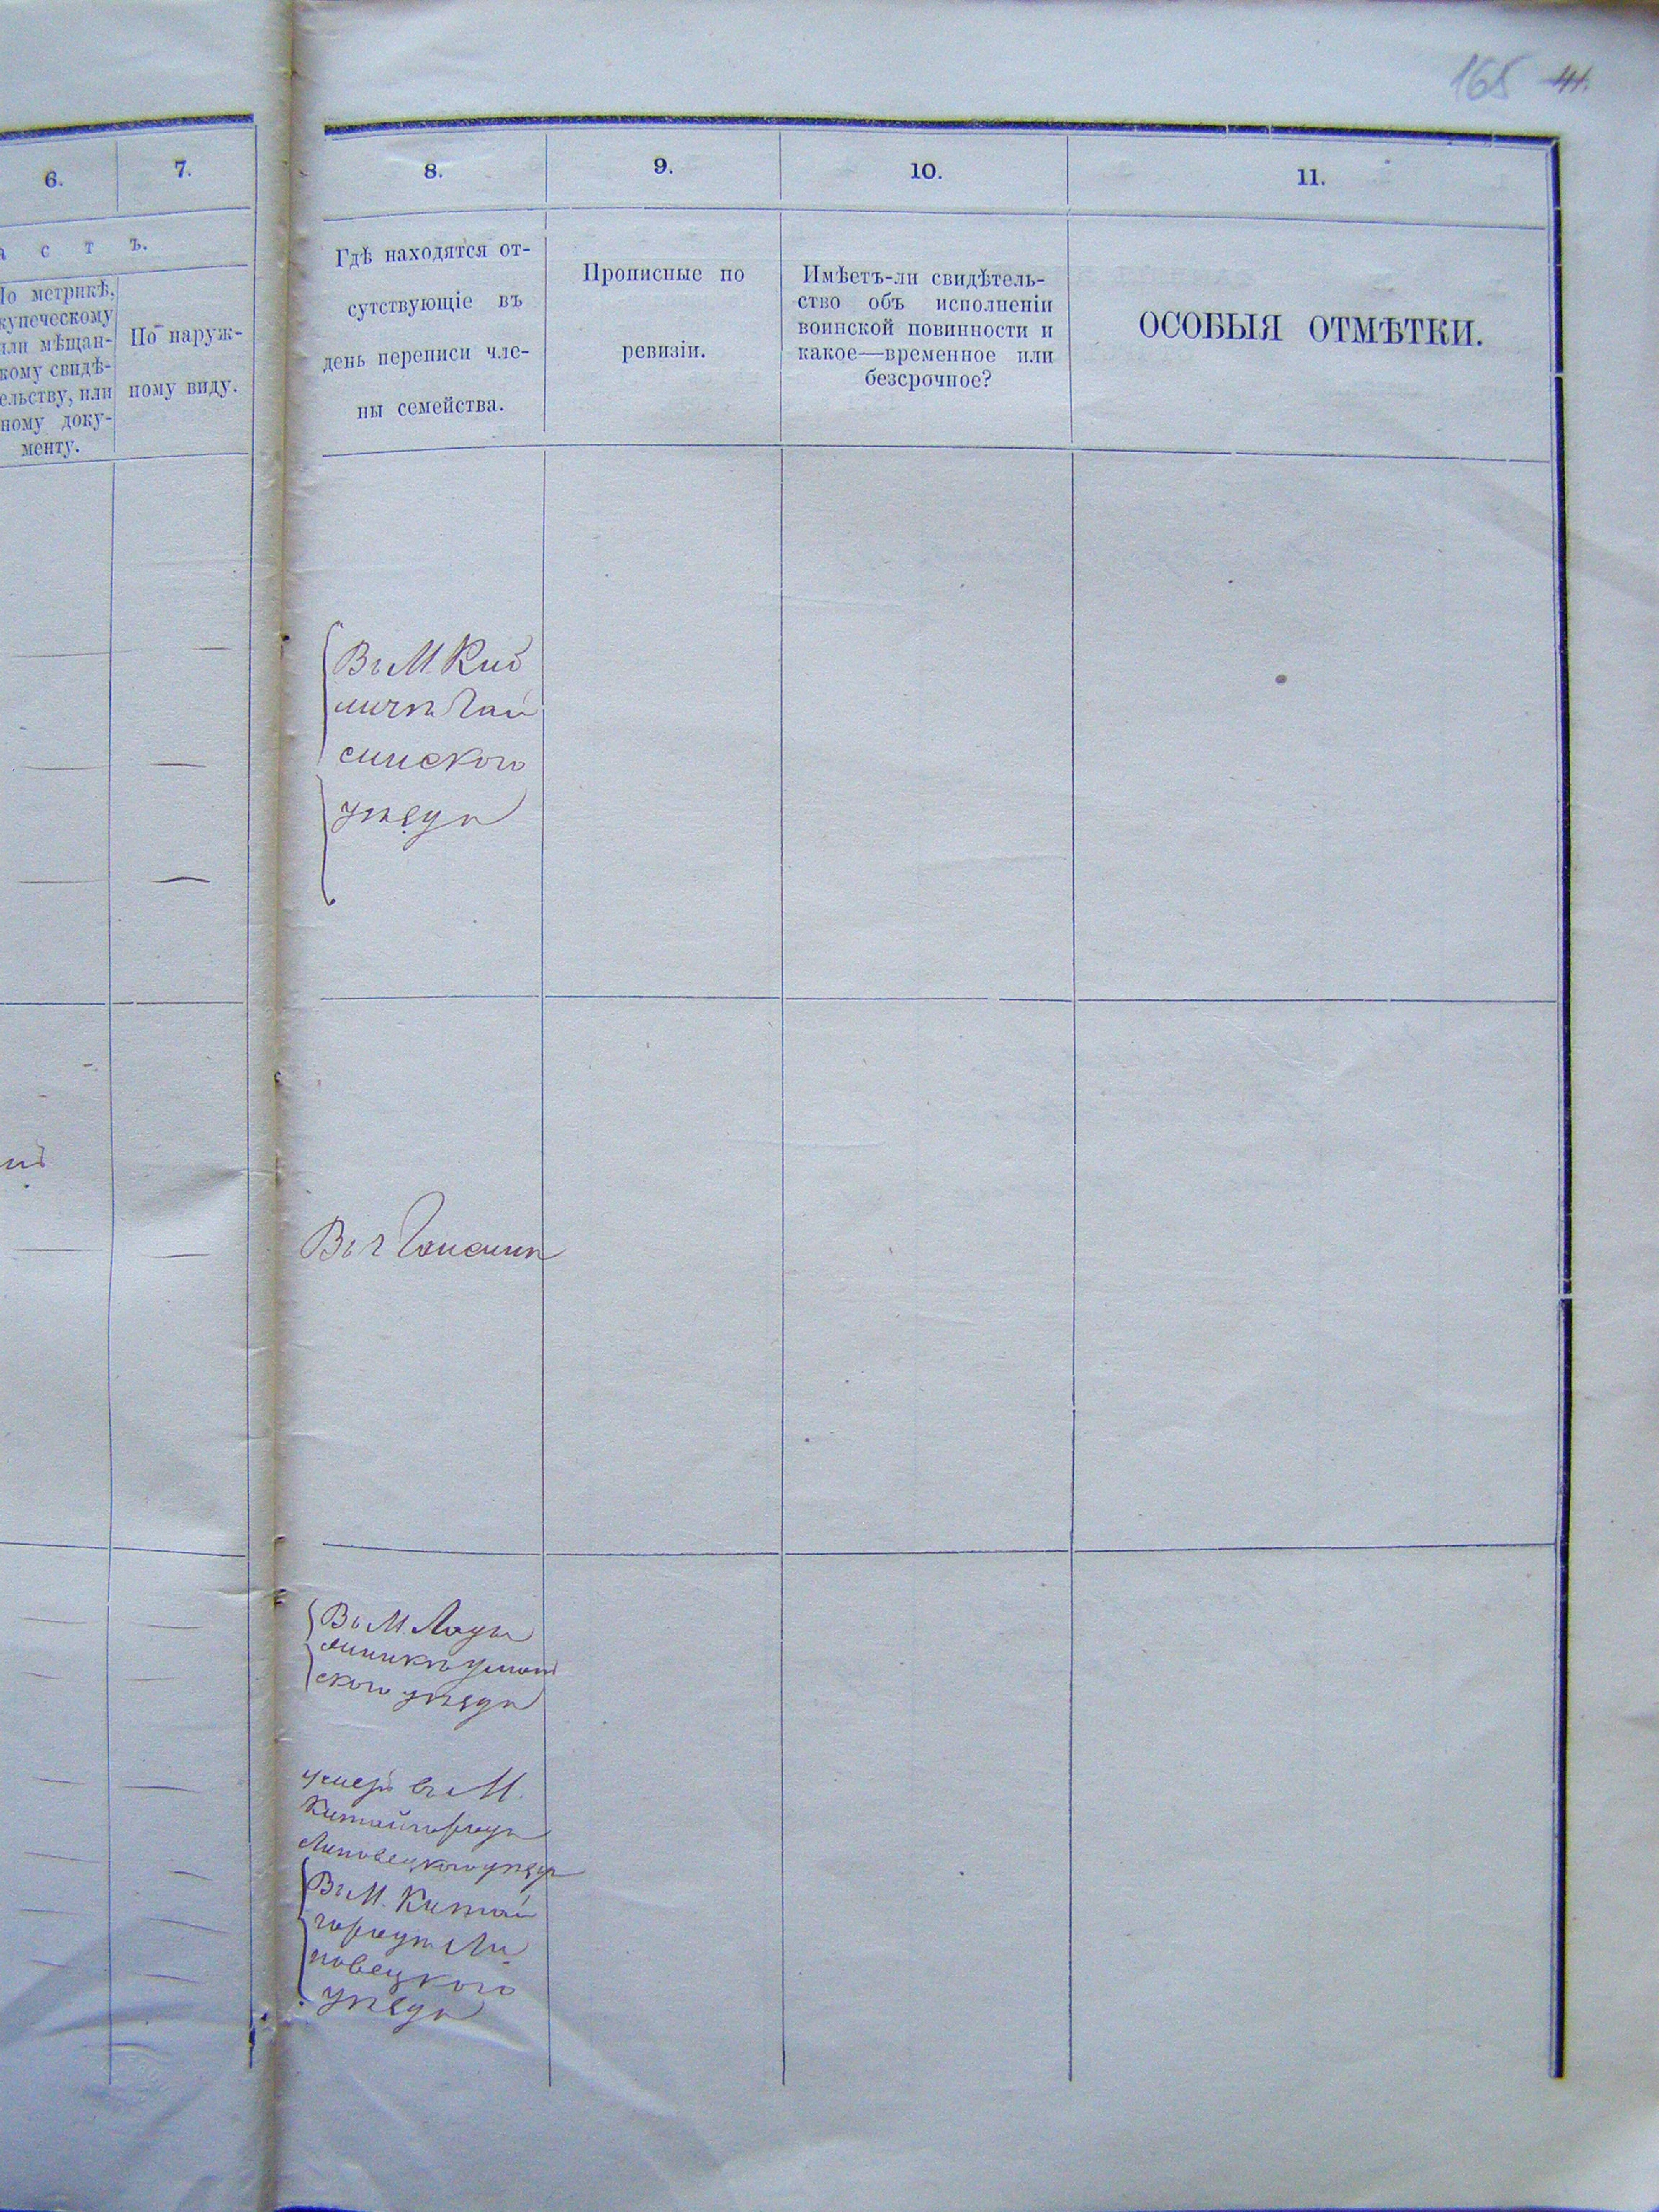 165 41.
6.
7.
8.
9.
10.
11.
а с т ъ.
По метрикѣ,
купеческому
или мѣщан-
скому свидѣ-
тельству, или
иному доку-
менту.
По наруж-
ному виду.
Гдѣ находятся от-
сутствующіе въ
день переписи чле-
ны семейства.
Прописные по
ревизіи.
Имѣетъ-ли свидѣтель-
ство объ исполненіи
воинской повинности и
какое—временное или
безсрочное?
ОСОБЫЯ ОТМѢТКИ.
Въ М. Киб
личѣ Гай
синского
уѣзда
Въ г Гайсинѣ
Въ М. Лады
жинкѣ Уман
ского уѣзда
умеръ въ М.
Китайгородѣ
Липовецкого уѣзда
Въ М. Китай
городѣ Ли
повецкого
уѣзда